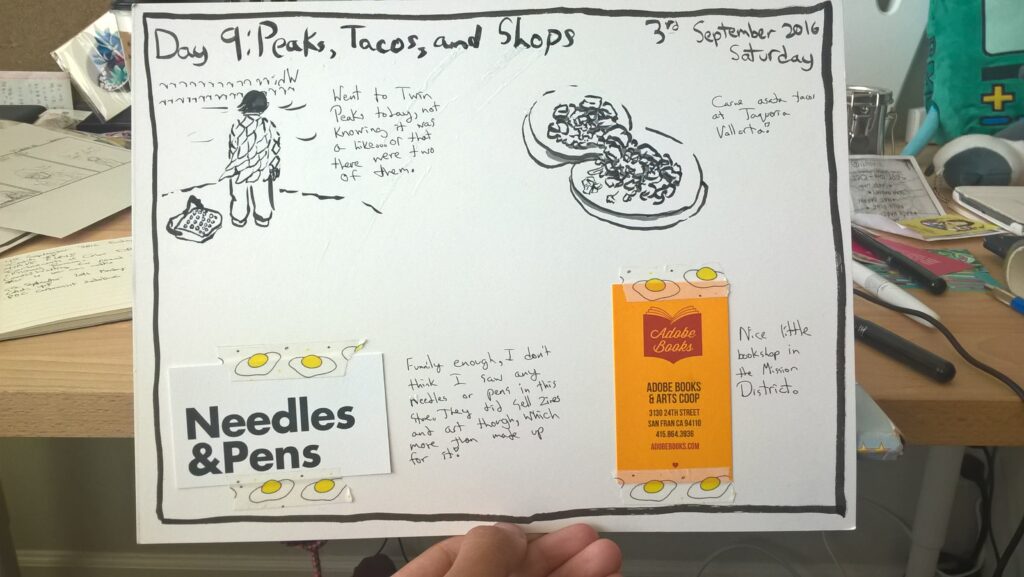 Day 9: Peaks, Tacos, and Shops
3rd September 2016
Saturday
Went to Twin
Peaks today, not
knowing it was
a hike... or that
there were two
of them.
Carne asada tacos
at Taqueria
Vallarta.
Needles
&Pens
Funnily enough, I don't
think I saw any
needles or pens in this
store. They did sell zines
and art though, which
more than made up
for it.
Adobe
Books
ADOBE BOOKS
& ARTS COOP
3130 24TH STREET
SAN FRAN CA 94110
415.864.3936
ADOBEBOOKS.COM
Nice little
bookshop in
the Mission
District.